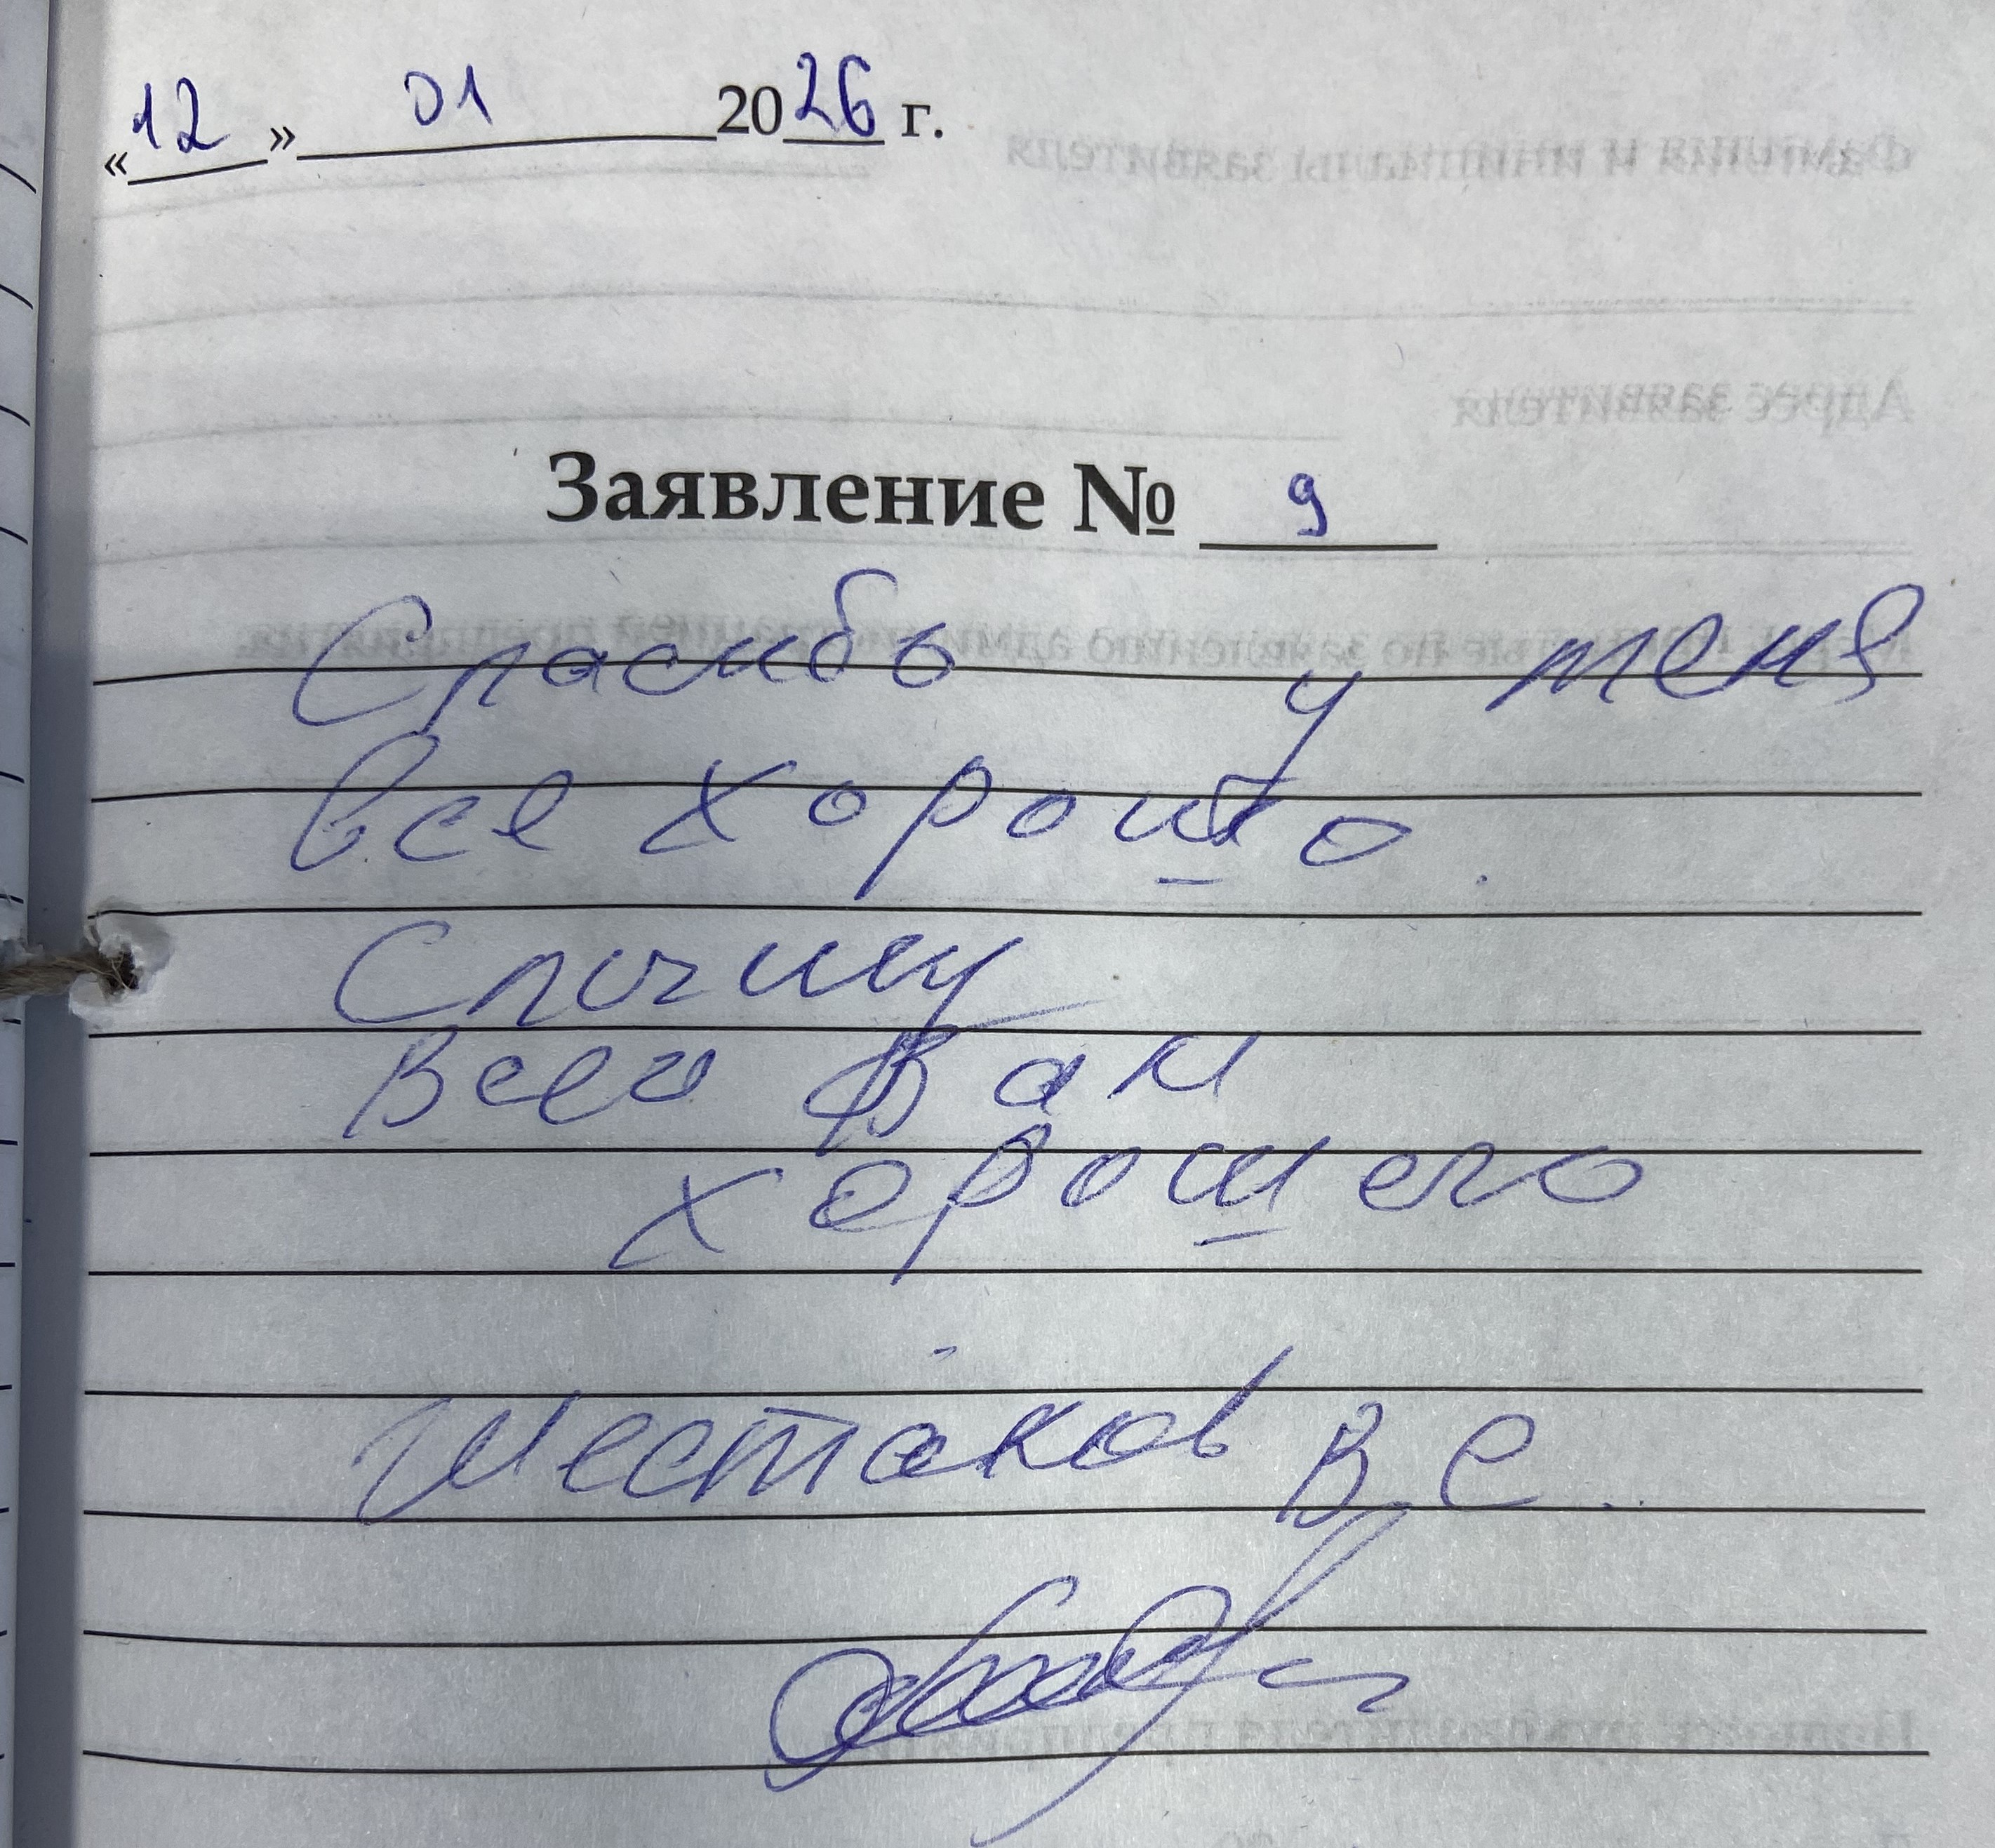 «12» 01 2026 г.
Заявление № 9
Спасибо у меня
все хорошо.
Спичу
Всего Вам
хорошего
Шестаков В С.